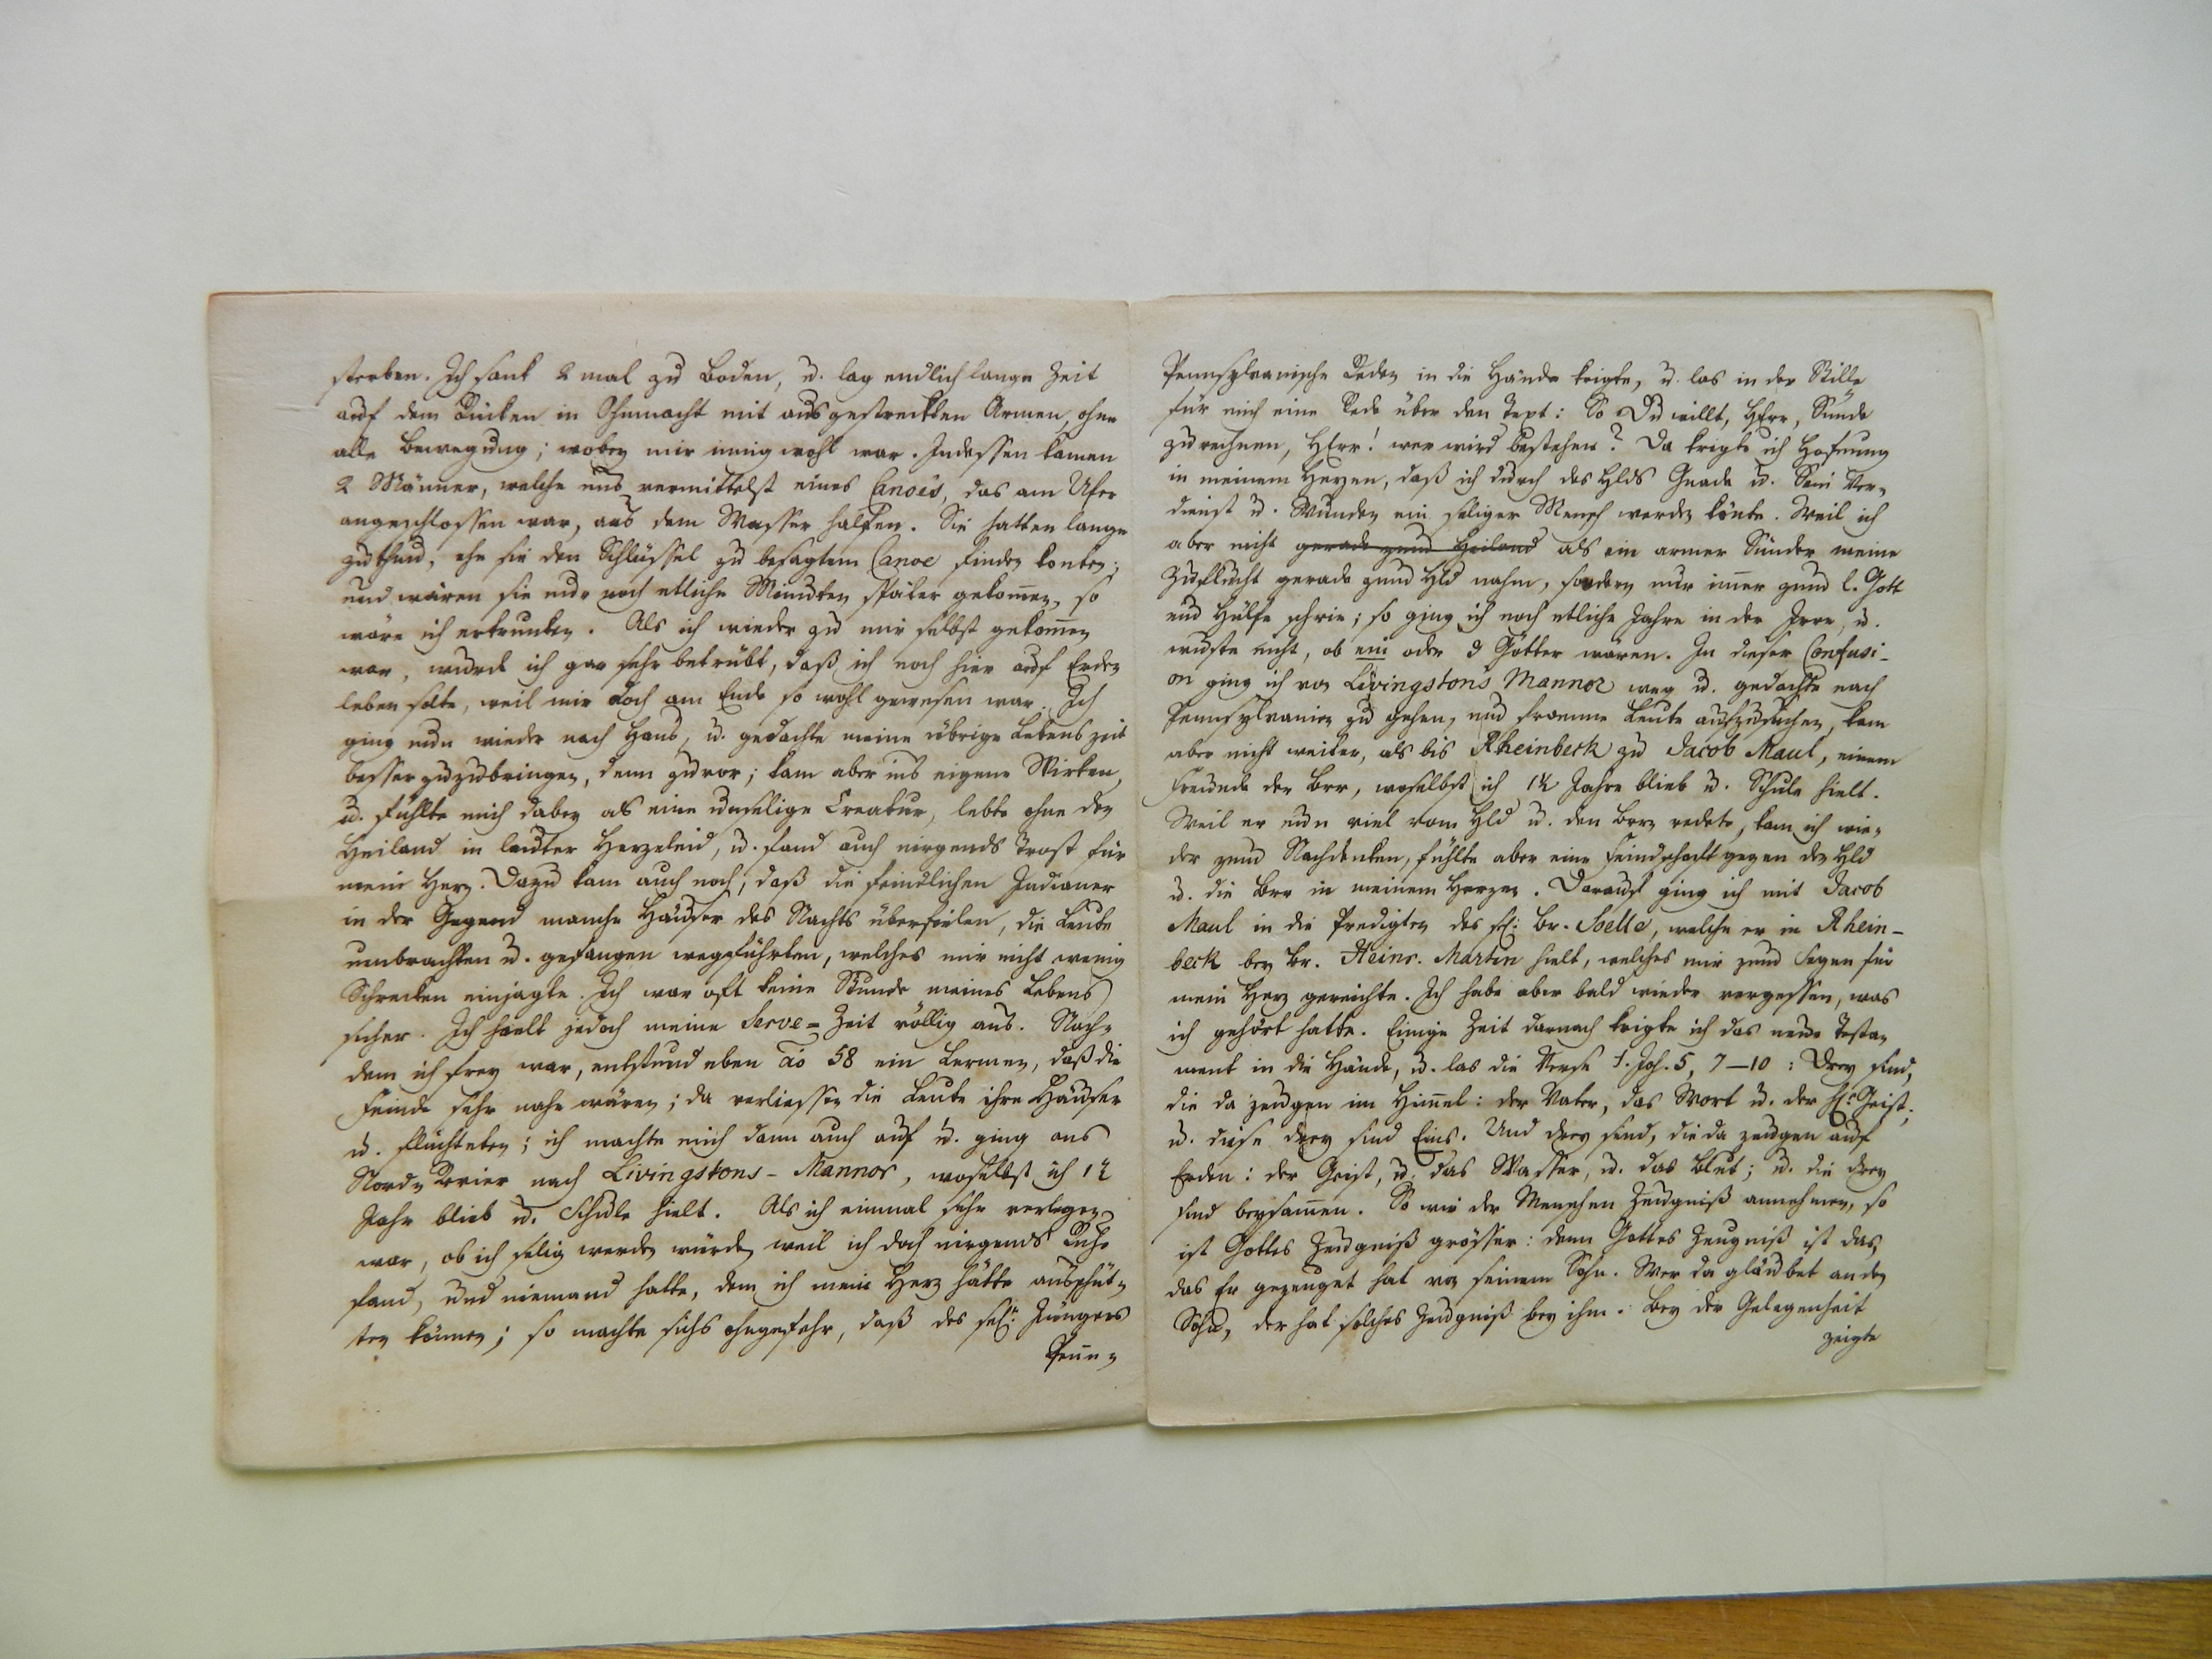 sterben. Ich sank 2 mal zu Boden, u. lag endlich lange Zeit
auf dem Rücken in Ohnmacht mit ausgestreckten Armen, ohne
alle Bewegung; wobey mir innig wohl war. Indessen kamen
2 Männer, welche uns vermittelst eines Canoes, das am Ufer
angeschlossen war, aus dem Wasser halfen. Sie hatten lange
zu thun, ehe sie den Schlüssel zu besagtem Canoe finden konten;
und wären sie nur noch etliche Minuten später gekom̄en, so
wäre ich ertrunken. Als ich wieder zu mir selbst gekom̄en
war, wurde ich gar sehr betrübt, daß ich noch hier auf Erden
leben solte, weil mir doch am Ende so wohl gewesen war. Ich
ging nun wieder nach Haus, u. gedachte meine übrige Lebenszeit
besser zuzubringen, denn zuvor; kam aber ins eigene Wirken,
u. fühlte mich dabey als eine unselige Creatur, lebte ohne den
Heiland in lauter Herzeleid, u. fand auch nirgends Trost für
mein Herz. Dazu kam auch noch, daß die feindlichen Indianer
in der Gegend manche Häuser des Nachts überfielen, die Leute
umbrachten u. gefangen wegführten, welches mir nicht wenig
Schrecken einjagte. Ich war oft keine Stunde meines Lebens
sicher. Ich hielt jedoch meine Serve=Zeit völlig aus. Nach=
dem ich frey war, entstund eben ao 58 ein Lermen, daß die
Feinde sehr nahe wären; da verliessen die Leute ihre Häuser
u. flüchteten; ich machte mich dann auch auf u. ging ans
Nord=Revier nach Livingstons-Mannor, woselbst ich 1½
Jahr blieb u. Schule hielt. Als ich einmal sehr verlegen
war, ob ich selig werden würde, weil ich doch nirgends Ruhe
fand, und niemand hatte, dem ich mein Herz hätte ausschüt=
ten können; so machte sichs ohngefehr, daß des sel. Jüngers
Pen̄=
Pennsylvanische Reden in die Hände kriegte, u. las in der Stille
für mich eine Rede über den Text: So Du willt, HErr, Sünde
zurechnen, HErr! wer wird bestehen? Da kriegte ich Hofnung
in meinem Herzen, daß ich durch des Hlds Gnade u. Sein Ver=
dienst u. Wunden ein seliger Mensch werden könte. Weil ich
aber nicht gerade zum Heiland als ein armer Sünder meine
Zuflucht gerade zum Hld nahm, sondern nur im̄er zum l. Gott
um Hülfe schrie; so ging ich noch etliche Jahre in der Irre, u.
wuste nicht, ob ein oder 3 Götter wären. In dieser Confusi-
on ging ich von Livingstons Mannor weg u. gedachte nach
Pennsylvanien zu gehen, und fromme Leute aufzusuchen, kam
aber nicht weiter, als bis Rheinbeck zu Jacob Maul, einem
Freunde der Brr, woselbst ich 1½ Jahre blieb u. Schule hielt.
Weil er nun viel vom Hld u. den Brrn redete, kam ich wie=
der zum Nachdenken, fühlte aber eine Feindschaft gegen den Hld
u. die Brr in meinem Herzen. Darauf ging ich mit Jacob
Maul in die Predigten des sel. Br. Soelle, welche er in Rhein-
beck bey Br. Heinr. Martin hielt, welches mir zum Segen für
mein Herz gereichte. Ich habe aber bald wieder vergessen, was
ich gehört hatte. Einige Zeit darnach kriegte ich das neue Testa=
ment in die Hände, u. las die Verse 1. Joh. 5, 7–10: Drey sind,
die da zeugen im Him̄el: der Vater, das Wort u. der hl. Geist;
u. diese drey sind Eins. Und drey sind, die da zeugen auf
Erden: der Geist, u. das Wasser, u. das Blut; u. die drey
sind beysam̄en. So wir der Menschen Zeugniß annehmen, so
ist Gottes Zeugniß grösser: denn Gottes Zeugniß ist das,
das Er gezeuget hat von seinem Sohn. Wer da gläubet an den
Sohn, der hat solches Zeugniß bey ihm. Bey der Gelegenheit
zeigte